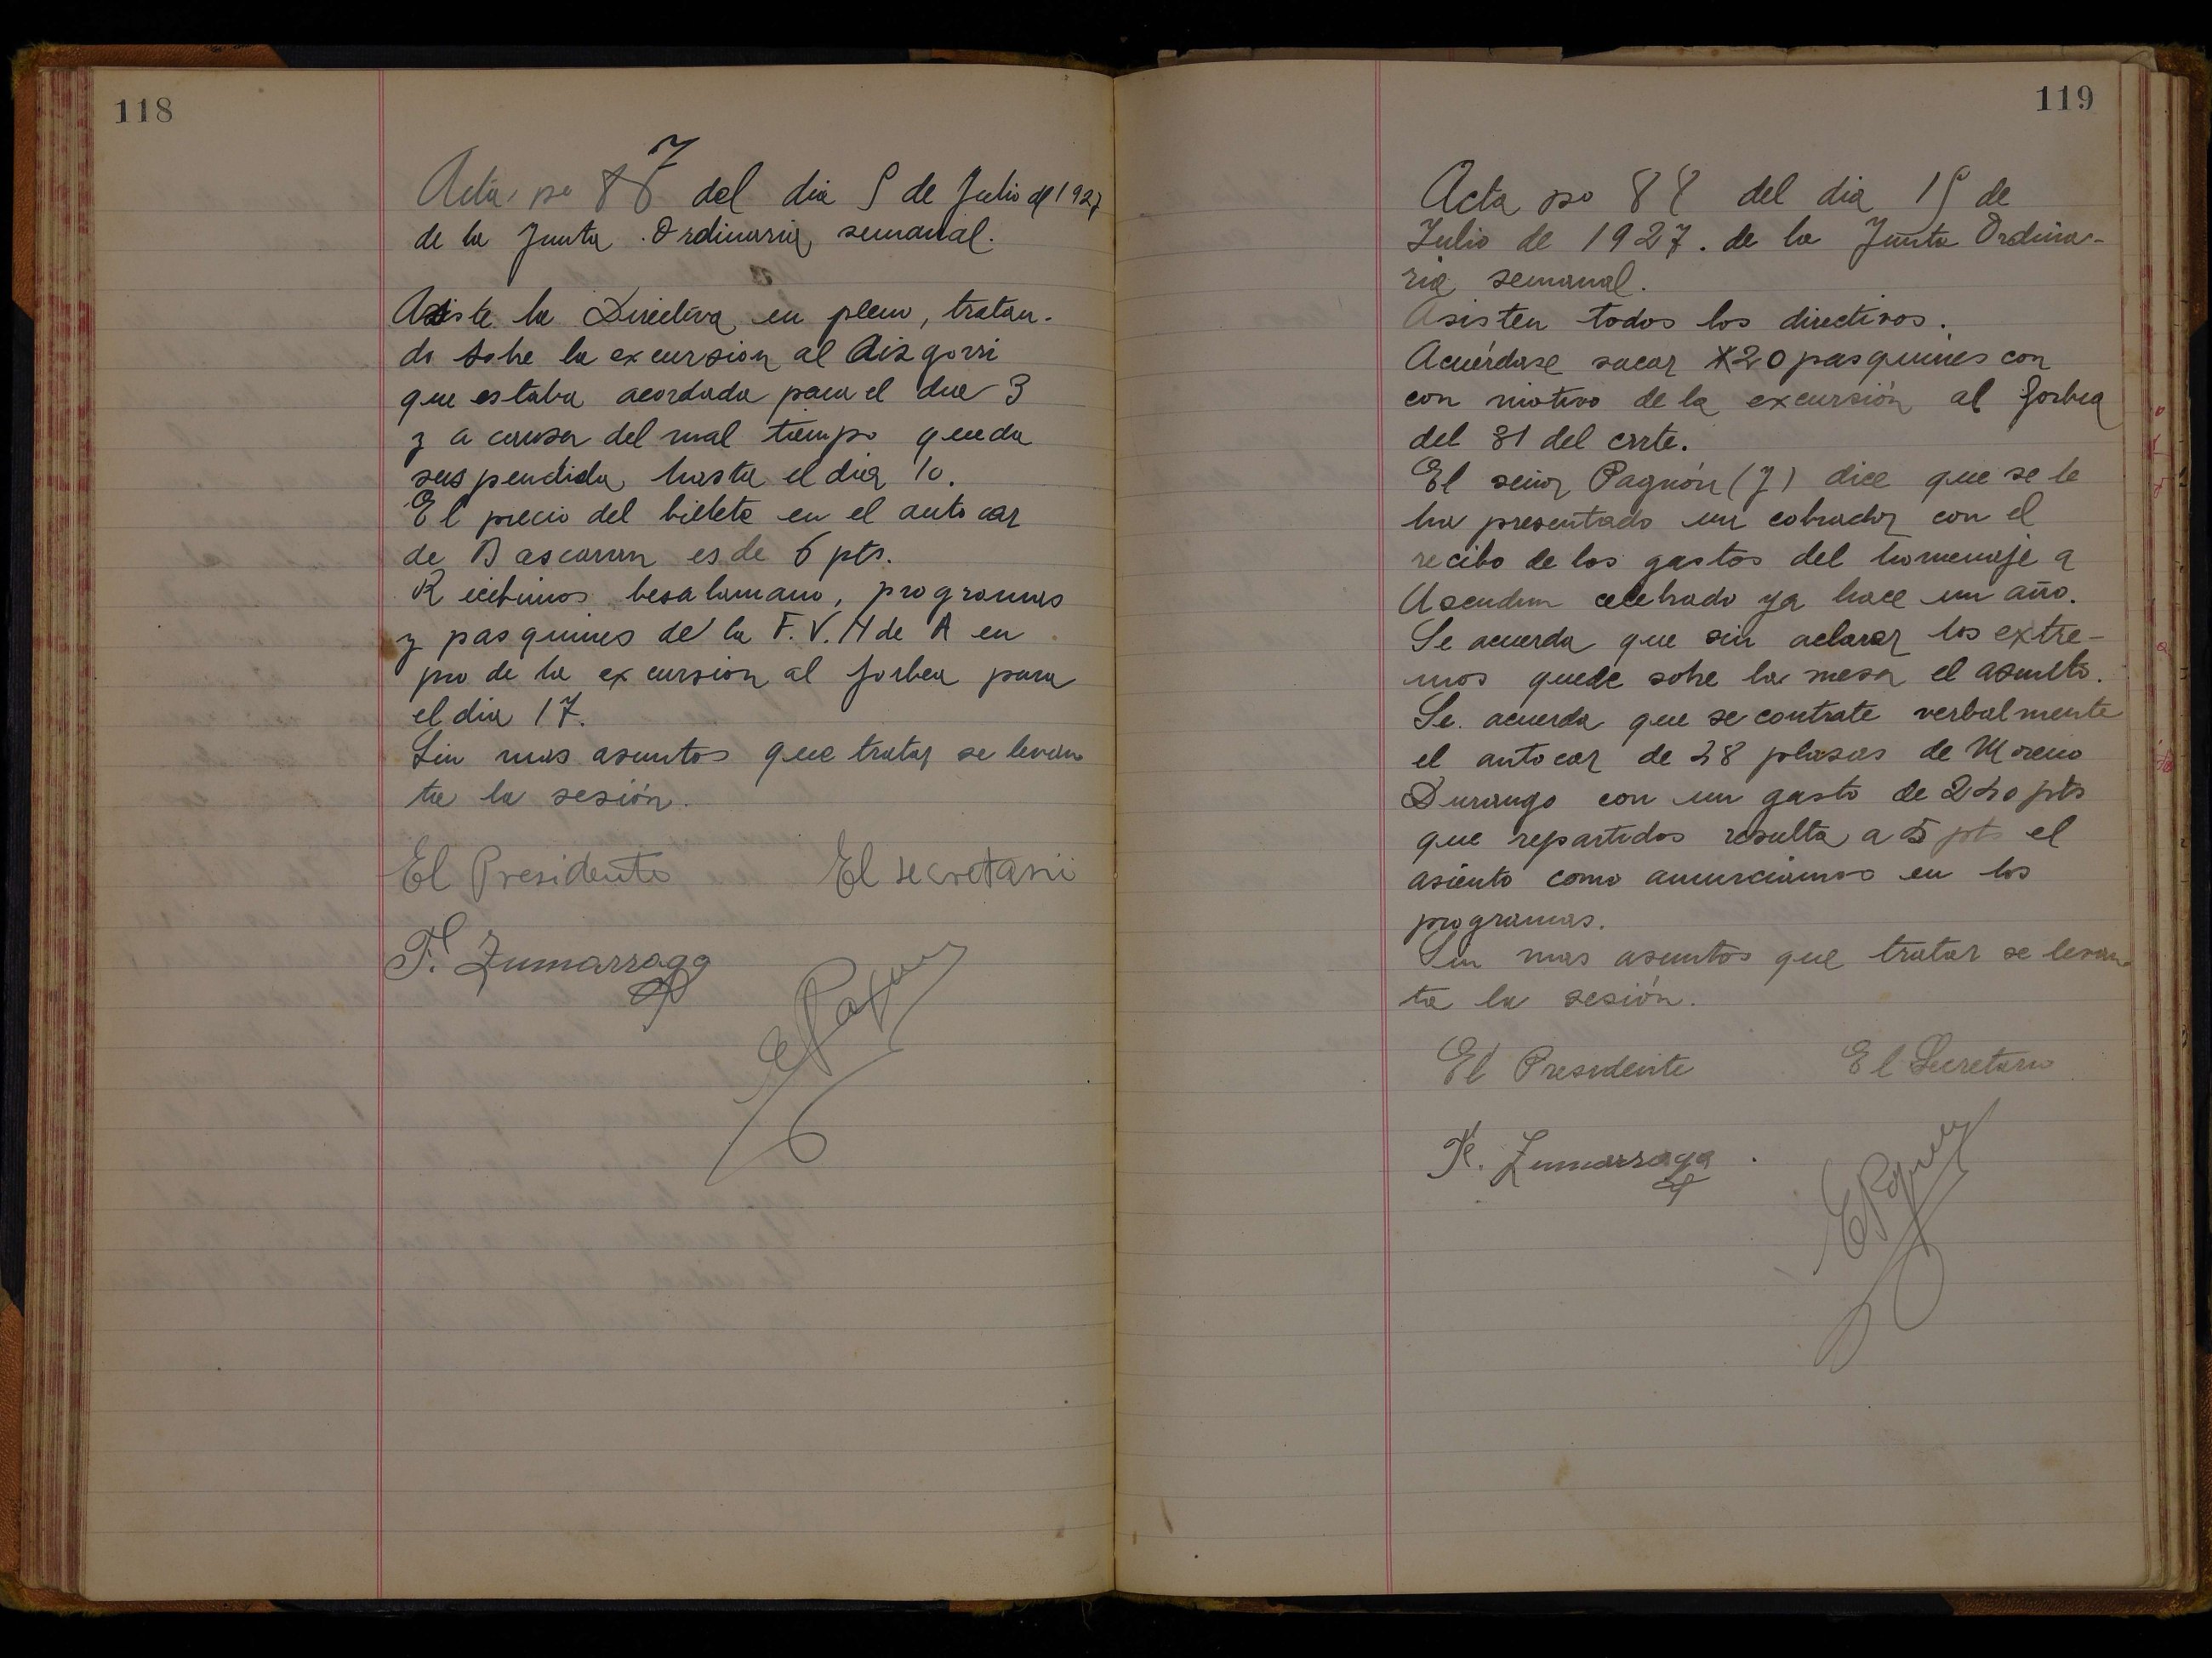 118
Acta no 87 del dia 5 de Julio de 1927
de la Junta Ordinaria semanal.
Asiste la Directiva en pleno, tratan-
do sobre la excursion al Aizgorri
que estaba acordada para el dia 3
y a causa del mal tiempo queda
suspendida hasta el dia 10.
El precio del billete en el autocar
de Bascaran es de 6 pts.
Recibimos besalamano, programas
y pasquines de la F. V. N de A en
pro de la excursion al Gorbea para
el dia 17.
Sin mas asuntos que tratar se levan
ta la sesión.
El Presidente El secretario
F. Zumarraga
119
Acta no 88 del dia 15 de
Julio de 1927. de la Junta Ordina-
ria semanal.
Asisten todos los directivos.
Acuérdase sacar 20 pasquines con
con motivo de la excursión al Gorbea
del 31 del crrte.
El señor Pagnón (J) dice que se le
ha presentado un cobrador con el
recibo de los gastos del homenaje a
celebrado ya hace un año.
Se acuerda que sin aclarar los extre-
mos quede sobre la mesa el asunto.
Se. acuerda que se contrate verbalmente
el autocar de 28 plasas de Moreno
Durango con un gasto de 240 pts
que repartidos resulta a 5 pts el
asiento como anunciamos en los
programas.
Sin mas asuntos que tratar se levan
ta la sesión.
El Presidente El Secretario
F. Zumarraga